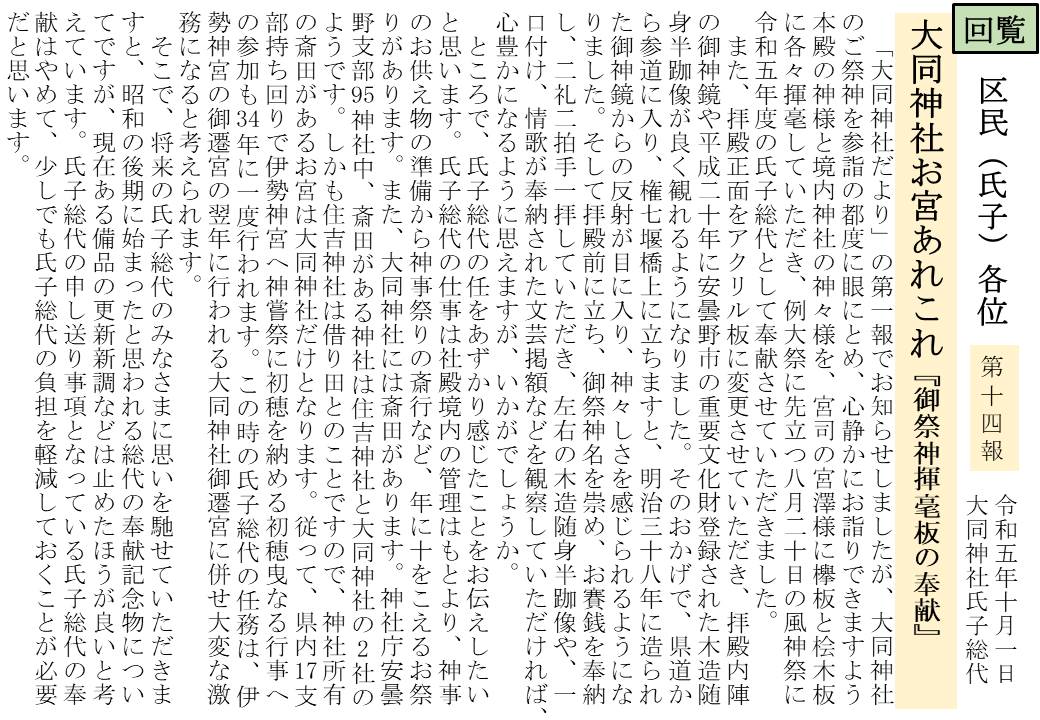 回覧
区民（氏子）各位
第十四報
令和五年十月一日
大同神社氏子総代
大同神社お宮あれこれ『御祭神揮毫板の奉献』
「大同神社だより」の第一報でお知らせしましたが、大同神社
のご祭神を参詣の都度に眼にとめ、心静かにお詣りできますよう
本殿の神様と境内神社の神々様を、宮司の宮澤様に欅板と桧木板
に各々揮毫していただき、例大祭に先立つ八月二十日の風神祭に
令和五年度の氏子総代として奉献させていただきました。
また、拝殿正面をアクリル板に変更させていただき、拝殿内陣
の御神鏡や平成二十年に安曇野市の重要文化財登録された木造随
身半跏像が良く観れるようになりました。そのおかげで、県道か
ら参道に入り、権七堰橋上に立ちますと、明治三十八年に造られ
た御神鏡からの反射が目に入り、神々しさを感じられるようにな
りました。そして拝殿前に立ち、御祭神名を崇め、お賽銭を奉納
し、二礼二拍手一拝していただき、左右の木造随身半跏像や、一
口付け、情歌が奉納された文芸掲額などを観察していただければ、
心豊かになるように思えますが、いかがでしょうか。
ところで、氏子総代の任をあずかり感じたことをお伝えしたい
と思います。氏子総代の仕事は社殿境内の管理はもとより、神事
のお供え物の準備から神事祭りの斎行など、年に十をこえるお祭
りがあります。また、大同神社には斎田があります。神社庁安曇
野支部95神社中、斎田がある神社は住吉神社と大同神社の2社の
ようです。しかも住吉神社は借り田とのことですので、神社所有
の斎田があるお宮は大同神社だけとなります。従って、県内17支
部持ち回りで伊勢神宮へ神嘗祭に初穂を納める初穂曳なる行事へ
の参加も34年に一度行われます。この時の氏子総代の任務は、伊
勢神宮の御遷宮の翌年に行われる大同神社御遷宮に併せ大変な激
務になると考えられます。
そこで、将来の氏子総代のみなさまに思いを馳せていただきま
すと、昭和の後期に始まったと思われる総代の奉献記念物につい
てですが、現在ある備品の更新新調などは止めたほうが良いと考
えています。氏子総代の申し送り事項となっている氏子総代の奉
献はやめて、少しでも氏子総代の負担を軽減しておくことが必要
だと思います。